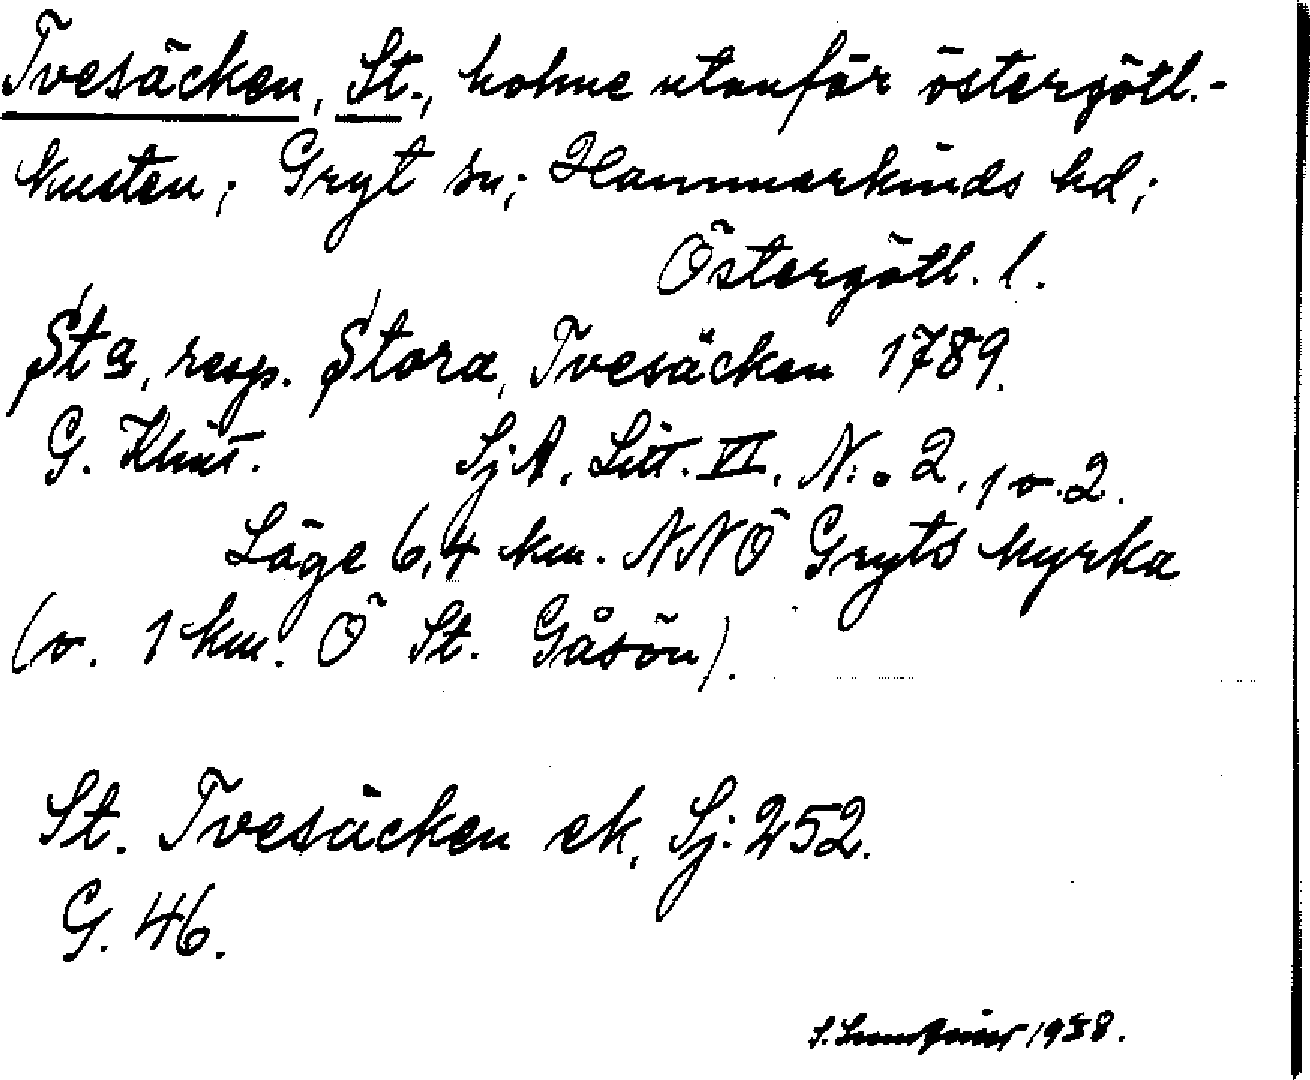 Tvesäcken, St., holme utanför östergötl.-
kusten; Gryt sn; Hammarkinds hd;
Östergötl. l.
Sta, resp. Stora, Tvesäcken 1789.
G. Klint. SjA, Litt. VI, N:o 2, 1 o. 2.
Läge 6,4 km. NNÖ Gryts kyrka
(o. 1 km. Ö St. Gåsön).
St. Tvesäcken ek, Sj: 252.
G. 46.
1938.